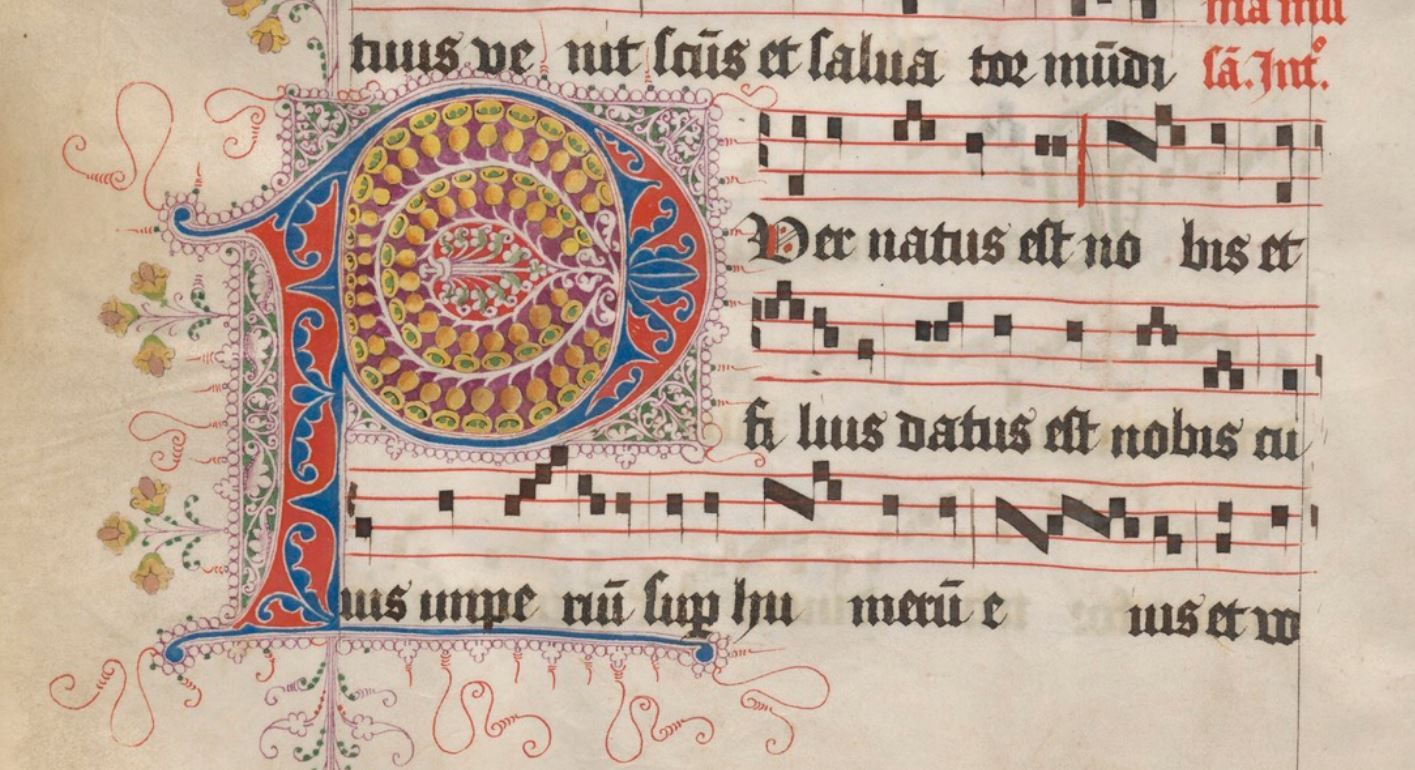 ma miſ
tuus ve nit ſcūs et ſalua tor mūdi ſā. Intº.
P Uer natus eſt no bis et
fi lius datus eſt nobis cu
ius impe riū ſup hu merū e ius et vo